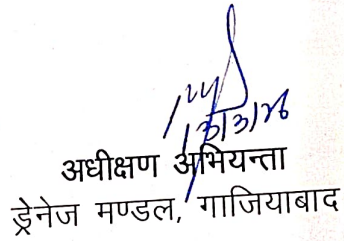 13/3/26
अधीक्षण अभियन्ता
ड्रेनेज मण्डल, गाजियाबाद